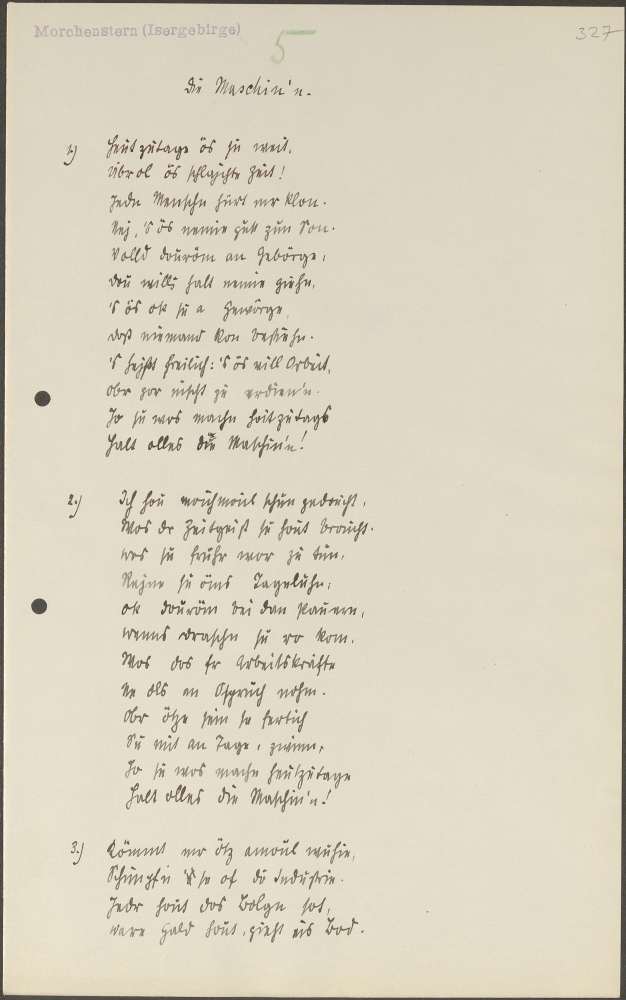 Morchenstern (Isergebirge)
5
327
Die Maschin'n.
1.) Heutzutage ös su weit,
Übrol ös schlajchte Zeit!
Jedn Menschn hürt mr klon.
Nej, 's ös nemie gutt zun Son.
Volld douröm an Gebörge,
dou wills halt nemie giehn,
's ös ok su a Gewörge,
daß niemand kon bestiehn.
's hejßt freilich: 's ös vill Orbeit,
obr gor nischt zu verdien'n.
Jo su wos machn heitzutags
halt olles die Maschin'n!
2.) Ich hou mouchmoul schun gedoucht,
Wos dr Zeitgeist su hout braucht.
wos su frühr wor zu tun,
Rejne su öms Tagelohn,
ok douröm bei dan Pauern,
wenns draschn su vo kom,
Wos dos fr Arbeitskräfte
ols an nohm.
Obr ötze sein se fertich
Su mit an Tage, zwinn,
Jo su wos machn heutzutage
halt olles die Maschin'n!
3.) Kömmt mr ötz amoul wuhie,
Schimpfn se of die Industrie.
Jedr hout dos Bolgn sot,
ware Gald hout, zieht eis Bod.